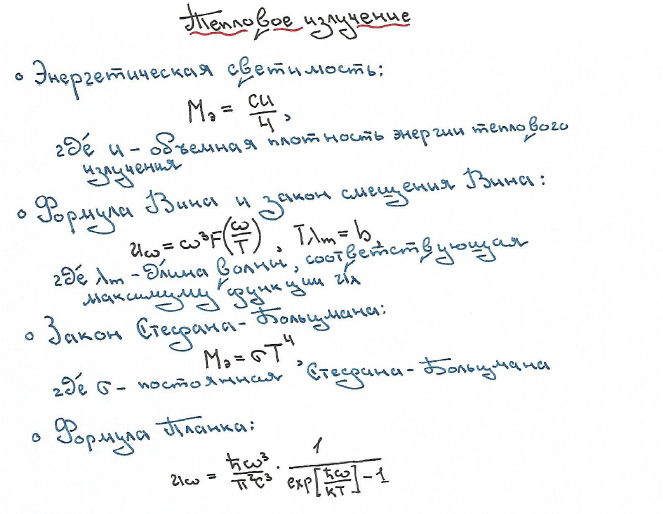 Тепловое излучение
• Энергетическая светимость:
Mэ = cu/4,
где u - объемная плотность энергии теплового
излучения
• Формула Вина и закон смещения Вина:
uω = ω³F(ω/T), Tλm = b,
где λm - длина волны, соответствующая
максимуму функции uλ
• Закон Стефана-Больцмана:
Mэ = σT⁴,
где σ - постоянная Стефана-Больцмана
• Формула Планка:
uω = ħω³/π²c³ · 1/exp[ħω/kT]-1